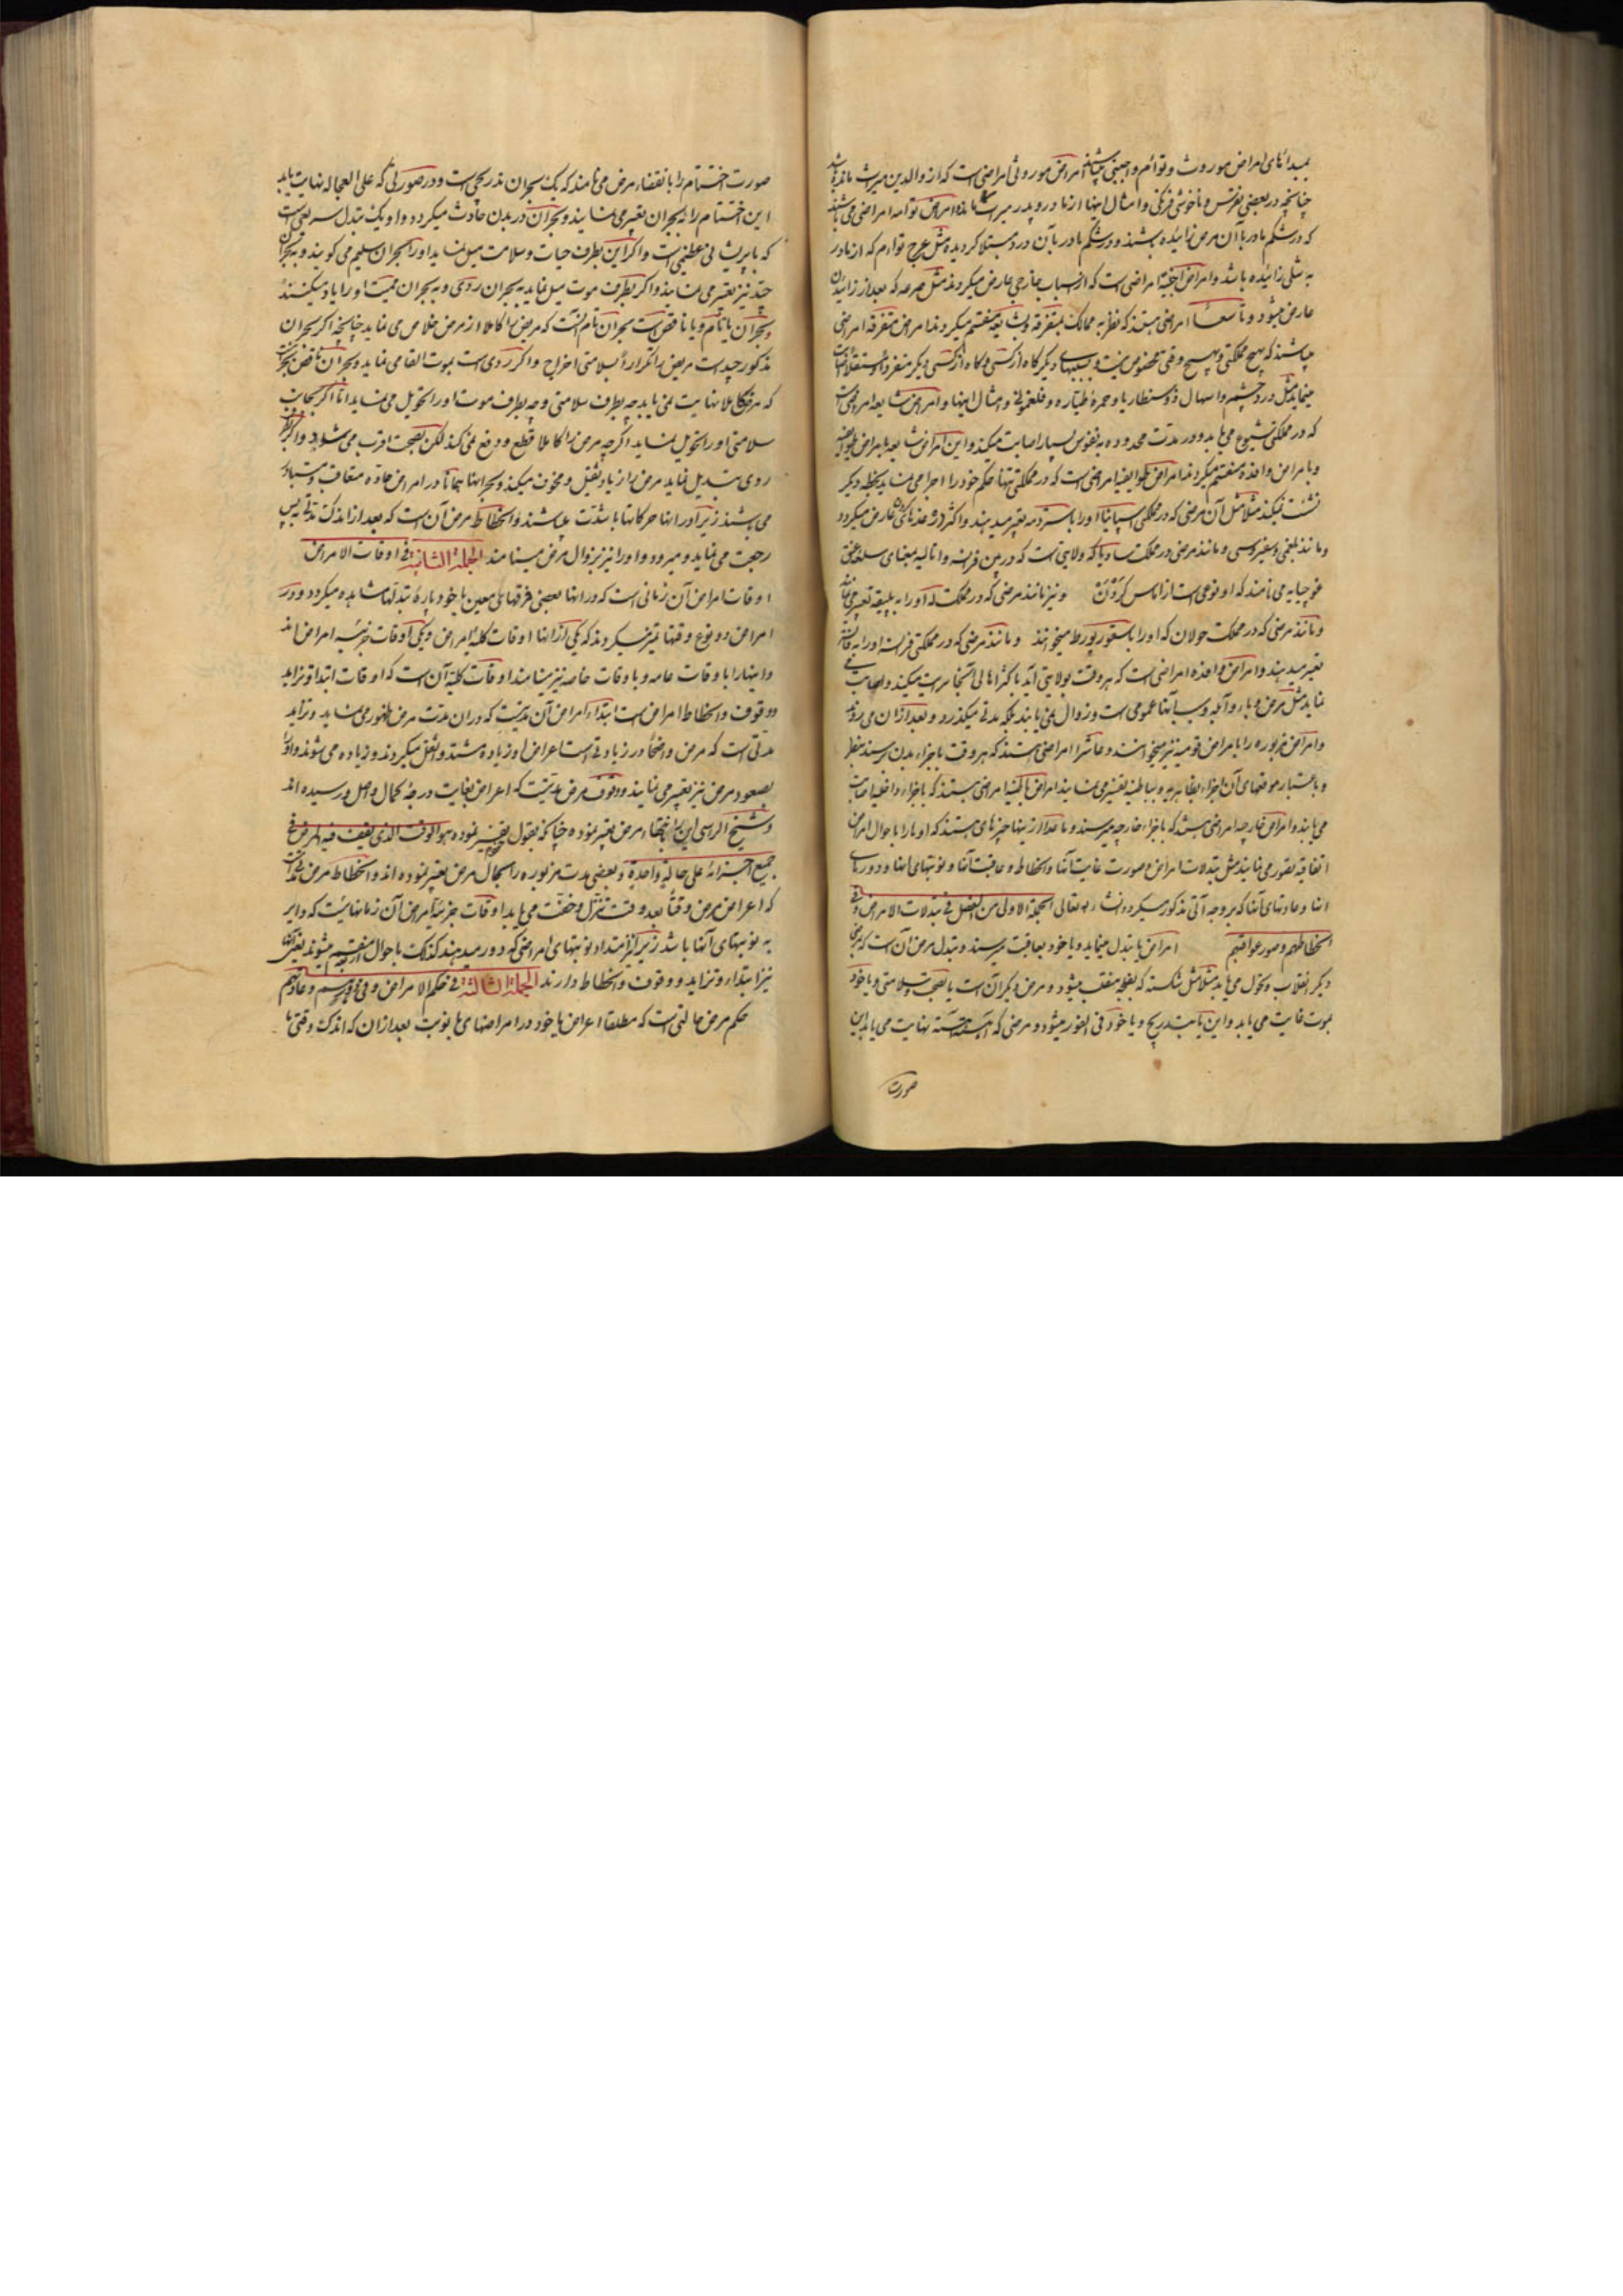 بمبدائهای امراض موروث و توائم و اجنبی میباشند امراض موروثی امراضی است که از والدین میراث مانده باشد
چنانچه در بعضی نقرس و ناخوشی فرنگی و امثال اینها از مادر و پدر میراث امراض توامه امراضی می باشند
که در شکم مادر با آن مرض زائیده بشند و در شکم مادر بآن درد مبتلا کردیده مثل عرج توام که از مادر
به شلی زائیده باشد و امراض اجنبیه امراضی است که از اسباب خارجی عارض میکردند مثل صرعه که بعد از زائیدن
عارض میشود و تاسعا امراضی هستند که نظر به ممالک بمتفرقه و بشایعه منقسم میکردند امراض متفرقه امراضی
میباشند که بهیچ مملکتی و بهیچ وقتی مخصوص نیست و بسببهای دیگر کاه از کسی و کاه از کسی دیگر منفردا و مستقلا
مینماید مثل درد چشم و اسهال ذوسنطاریا و حمره طیاره و فلغمونی و امثال اینها و امراض شایعه امراضی است
که در مملکتی شیوع می یابد و در مدت محدوده به نفوس بسیار اصابت میکند و این امراض شایعه بامراض طوایفیه
و بامراض وافده منقسم میکردند امراض طوایفیه امراضی است که در مملکتی تنها حکم خود را اجرا می نماید بخطه دیکر
نشئت نمیکند مثلا مثل آن مرضی که در مملکت اسپانیا او را باستردمه تعبیر میدهند و اکثر در غدهای عارض میکردد
و مانند بلغمی و غیروسی و مانند مرضی در مملکت ساویا که ولایتی است که در بین فرانسه و انالیه بمعنای سلعه عنق
غوچیایه می نامند که او نوعی است از اماس کردن و نیز مانند مرضی که در مملکت له او را به پلیقه تعبیر می نمایند
و مانند مرضی که در مملکت حولان که او را باسقوربورط میخوانند و مانند مرضی که در مملکتی فرانسه او را به
تعبیر میدهند و امراض وافده امراضی است که هر وقت بولایتی آید باکثر اهالی آنجا سرایت میکند و اصابت می
نماید مثل مرض وبا و آبله و سبب آنها عمومی است و زوال نمی یابند بلکه مدتی میکذرد و بعد از ان می روند
و امراض مزبوره را بامراض قومیه نیز میخوانند و عاشرا امراضی هستند که هر وقت باجزاء بدن برسند بنظر
و باعتبار موقعهای آن اجزاء بظاهریه و بباطنیه تعبیر می نمایند امراض باطنیه امراضی هستند که باجزاء داخلیه اصابت
می یابند و امراض خارجیه امراضی میشند که باجزاء خارجیه میرسند و ماعدا از اینها چیزهای هستند که او را باحوال امراض
اتفاقیه تصور می نمایند مثل تبدلات امراض و صورت غایت آنها و انحطاط و عاقبت آنها و نوبتهای اینها و دورهای
اینها و عادتهای آنها که بر وجه آتی مذکور میکردد انشاء الله تعالی الجملة الاولی من الفصل فی تبدلات الامراض و فی
انحطاطهم و صور عواقبهم امراض یا تبدل مینماید و یا خود بعاقبت میرسند و تبدل مرض آن است که بمرض
دیکر انقلاب و تحول می یابد مثلا مثل شکسته که بفلج منقلب میشود و مرض دیکر آن است یا بصحت و سلامتی و یا خود
بموت غایت می یابد و این یا بتدریج و یا خود فی الفور میشود و مرضی که آهسته آهسته نهایت می یابد این
صورت
صورت اختتام را بانقضاء مرض می نامند که یک بحران تدریجی است و در صورتی که علی العجاله نهایت یابد
این اختتام را ببحران تعبیر می نمایند و بحران در بدن حادث میکردد و او یک تبدل سریعی است
که با پریشانی عظیمی است و اکر این بطرف حیات و سلامت میل نماید او را بحران سلیم می کویند و به بحران
جید نیز تعبیر می نمایند و اکر بطرف موت میل نماید به بحران ردی و به بحران ممیت او را یاد میکنند
و بحران یا تام و یا ناقص است بحران تام آنست که مریض را کاملا از مرض خلاص می نماید چنانچه اکر بحران
مذکور جید است مریض را تکرارا بسلامتی اخراج و اکر ردی است بموت القا می نماید و بحران ناقص بحریست
که مرض کاملا نهایت نمی یابد چه بطرف سلامتی و چه بطرف موت او را تحویل می نماید اما اکر بجانب
سلامتی او را تحویل نماید اکرچه مرض را کاملا قطع و دفع نمی کند لکن بصحت اقرب می شود و اکر بطرف
ردی تبدیل نماید مرض را زیاد ثقیل و مخوف میکند و بحرانها همانا در امراض حاده متعاقب و بسیار
می باشند زیرا در اینها حرکاتها با شدت میباشند و انحطاط مرض آن است که بعد از اندک مدتی پس
رجعت می نماید و میرود و او را نیز بزوال مرض مینامند الجملة الثانیة فی اوقات الامراض
اوقات امراض آن زمانی است که در انها بعضی فرقهای معین یا خود پارهٔ تبدلها مشاهده میکردد و در
امراض دو نوع وقتها تمیز میکردند که یکی از اینها اوقات کلیهٔ امراض و یکی اوقات جزئیه امراض اند
و اینها را باوقات عامه و باوقات خاصه نیز مینامند اوقات کلیه آن است که اوقات ابتدا و تزاید
و وقوف و انحطاط امراض است ابتداء امراض آن مدتیست که در ان مدت مرض ظهور می نماید و تزاید
مدتی است که مرض واضحا در زیادتی است اعراض او زیاده مشتد و اثقل میکردند و زیاده می شوند و او را
بصعود مرض نیز تعبیر می نمایند و وقوف مرض مدتیست که اعراض بغایت درجهٔ کمال واصل و رسیده اند
و شیخ الرئیس این را بانتهاء مرض تعبیر نموده چنانکه بقول تفسیر نموده هو الوقت الذی یقف فیه المرض فی
جمیع اجزائه علی حالة واحدة و بعضی مدت مزبوره را بکمال مرض تعبیر نموده اند و انحطاط مرض مدتیست
که اعراض مرض وقتا بعد وقت تنزل و خفت می یابد اوقات جزئیهٔ امراض آن زمانهایست که دایر
به نوبتهای آنها باشد زیرا که از امتداد نوبتهای امراضی که دور میدهند کذلک باحوال اربعه منقسم میشوند یعنی آنها
نیز ابتداء و تزاید و وقوف و انحطاط دارند الجملة الثالثة فی حکم الامراض و فی دورهم و عادتهم
حکم مرض حالتی است که مطلقا اعراض یا خود در امراضهای با نوبت بعد از ان که اندک وقتی با